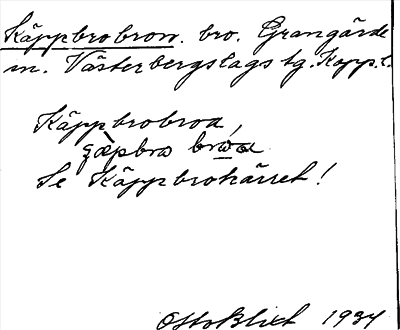 Käppbrobron. bro. Grangärde
sn. Västerbergslags tg. Kopp. l.
Käppbrobroa,
Se Käppbrokärret!
Otto Blixt 1934